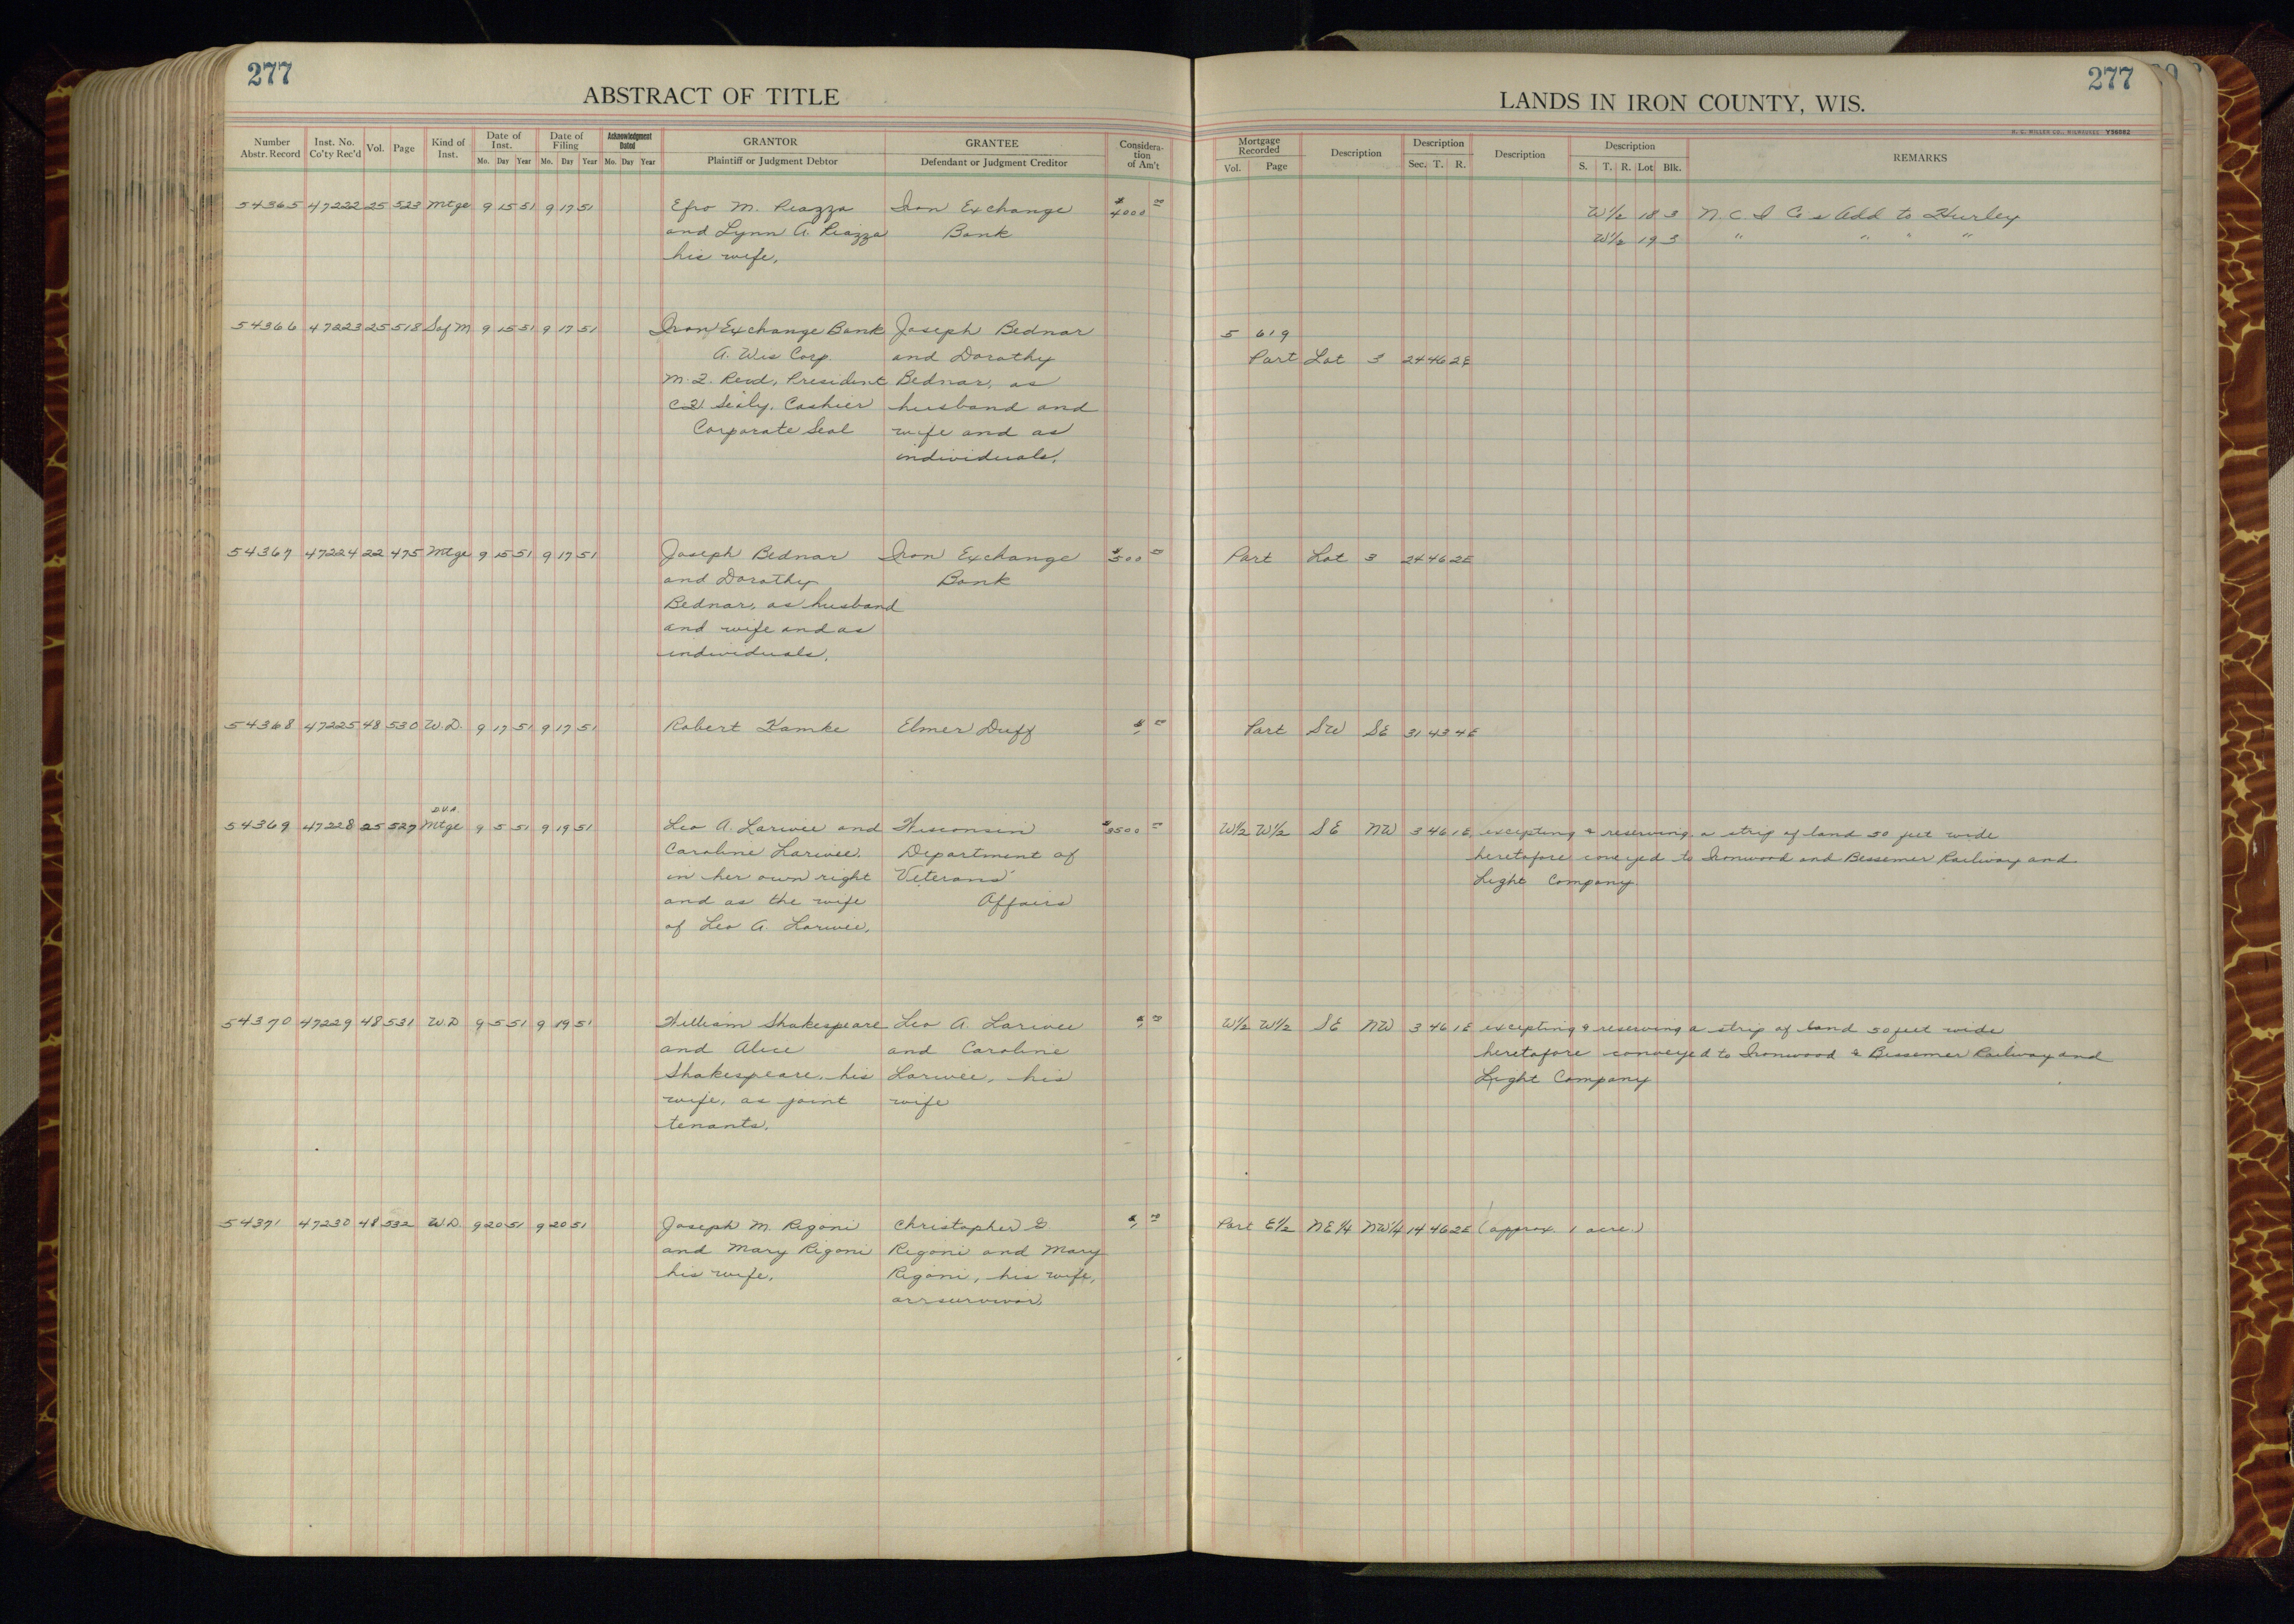 277
ABSTRACT OF TITLE
Number Abstr. Record Inst. No. Co'ty Rec'd Vol. Page Kind of Inst. Date of Inst. Mo. Day Year Date of Filing Mo. Day Year Acknowledgment Dated Mo. Day Year GRANTOR Plaintiff or Judgment Debtor GRANTEE Defendant or Judgment Creditor Consideration of Am't
54365 47222 25 523 Mtge 9 15 51 9 17 51 M. Piazza Iron Exchange $4000 00
and Lynn A. Piazza Bank
his wife,
54366 47223 25 518 Sat M 9 15 51 9 17 51 Iron Exchange Bank Joseph Bednar
A. Wis Corp. and Dorothy
President Bednar, as
Cashier husband and
Corporate Seal wife and as
individuals,
54367 47224 22 475 Mtge 9 15 51 9 17 51 Joseph Bednar Iron Exchange $500 00
and Dorothy Bank
Bednar, as husband
and wife and as
individuals,
54368 47225 48 530 W.D. 9 17 51 9 17 51 Robert Kamke Elmer Duff $1 00
D.V.A.
54369 47228 25 527 Mtge 9 5 51 9 19 51 Leo A. Larivee and Wisconsin $3500 00
Caroline Larivee, Department of
in her own right Veterans'
and as the wife Affairs
of Leo A. Larivee,
54370 47229 48 531 W.D 9 5 51 9 19 51 William Shakespeare Leo A. Larivee $1 00
and Alice and Caroline
Shakespeare, his Larivee, his
wife, as joint wife
tenants,
54371 47230 48 532 W.D. 9 20 51 9 20 51 Joseph M. Rigoni Christopher G $1 00
and Mary Rigoni Rigoni and Mary
his wife, Rigoni, his wife,
277
LANDS IN IRON COUNTY, WIS.
H. C. MILLER CO., MILWAUKEE Y36082
Mortgage Recorded Vol. Page Description Description Sec. T. R. Description Description S. T. R. Lot Blk. REMARKS
W1/2 18 3 N. C. I Co's Add to Hurley
W1/2 19 3 " " " "
5 619
Part Lot 3 24 46 2E
Part Lot 3 24 46 2E
Part SW SE 31 43 4E
W1/2 W1/2 SE NW 3 46 1E excepting & reserving a strip of land 50 feet wide
heretofore conveyed to Ironwood and Bessemer Railway and
Light Company
W1/2 W1/2 SE NW 3 46 1E excepting & reserving a strip of land 50 feet wide
heretofore conveyed to Ironwood & Bessemer Railway and
Light Company
Part E1/2 NE1/4 NW1/4 14 46 2E (approx. 1 acre.)